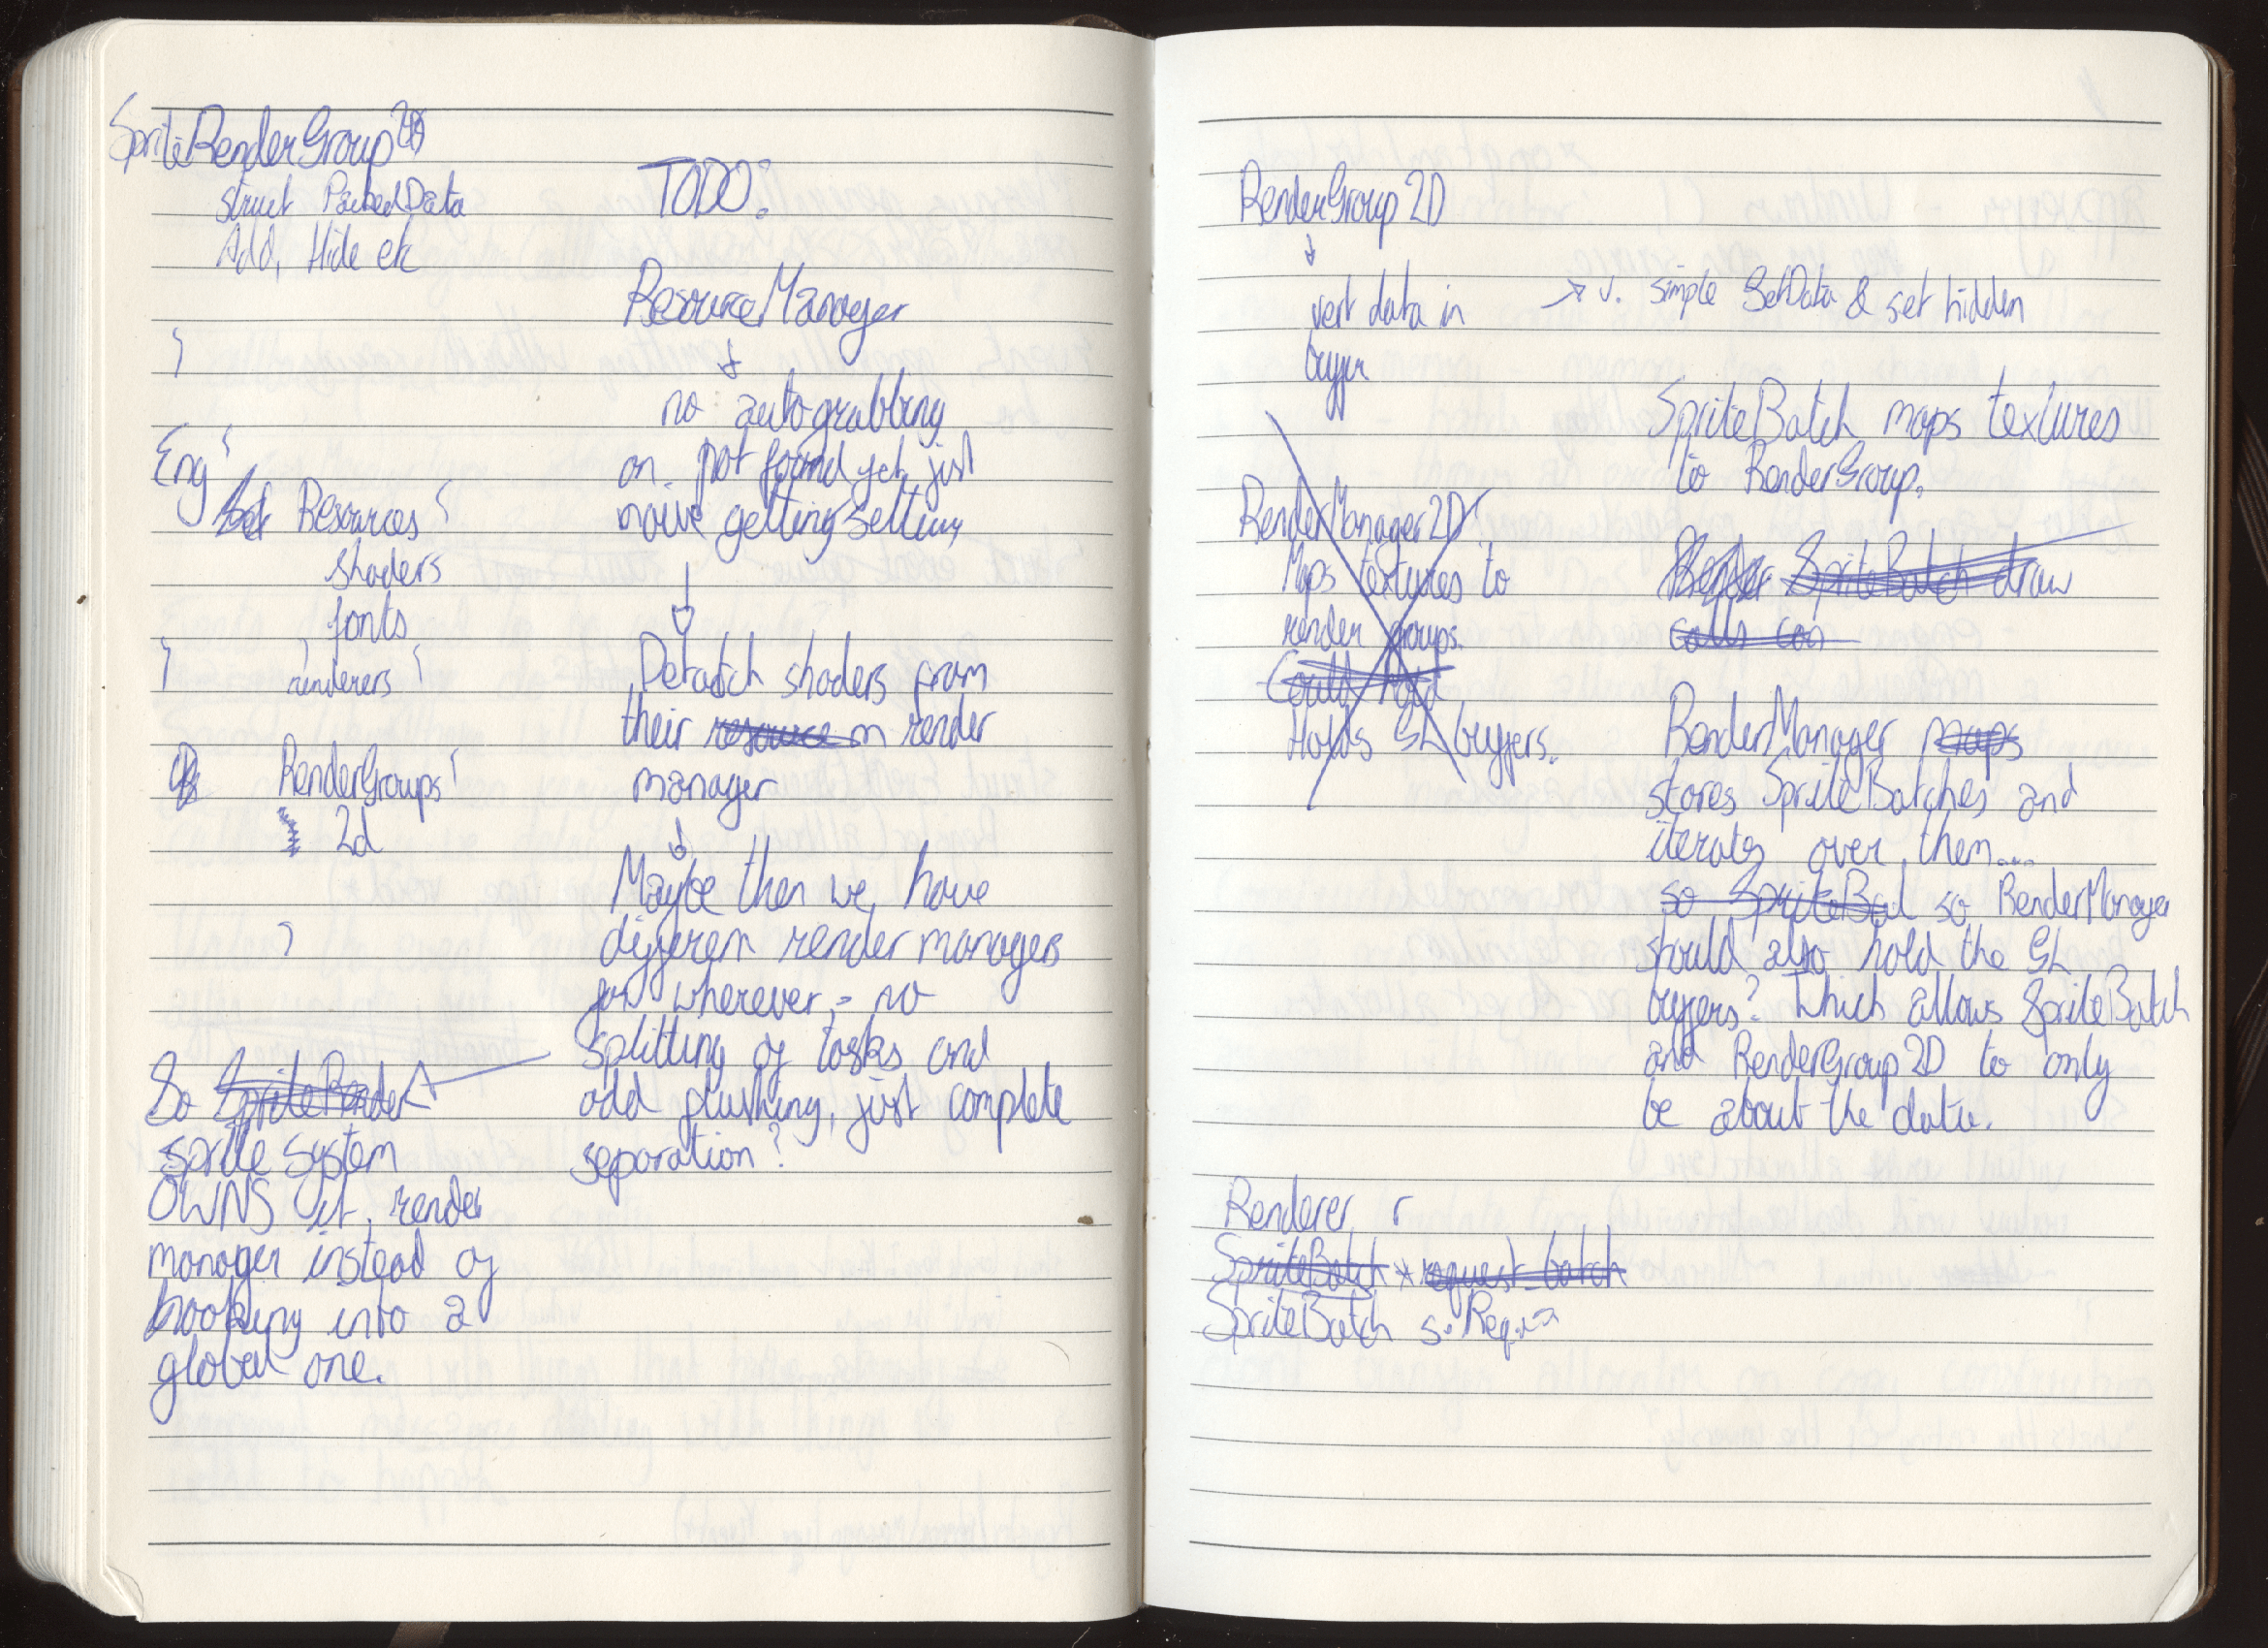 SpriteRenderGroup
struct PackedData
Add, Hide etc
}
Eng {
Resources {
shaders
fonts
}
renderers {
RenderGroups {
2d
}
So SpriteRender
sprite system
OWNS it, render
manager instead of
hooking into a
global one.
TODO:
ResourceManager
↓
no auto grabbing
on not found yet, just
naive getting/setting
↓
Detatch shaders from
their resource m render
manager
↓
Maybe then we have
different render managers
for wherever, = no
splitting of tasks and
odd flushing, just complete
separation?
RenderGroup2D
↓
vert data in
buffer
→ v. simple SetData & set hidden
RenderManager2D
Maps textures to
render groups.
Could hold
Holds GL buffers.
SpriteBatch maps textures
to RenderGroup.
Render SpriteBatch draw
calls can
RenderManager maps
stores SpriteBatches and
iterates over them...
so SpriteBat so RenderManager
should also hold the GL
buffers? Which allows SpriteBatch
and RenderGroup2D to only
be about the data.
Renderer r
SpriteBatch * request_batch
SpriteBatch